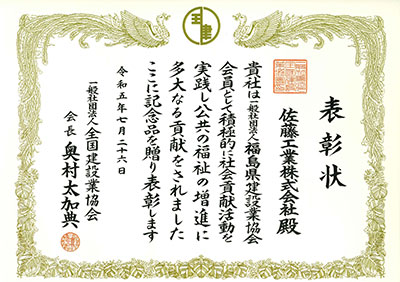 表彰状
佐藤工業株式会社殿
貴社は一般社団法人福島県建設業協会
会員として積極的に社会貢献活動を
実践し公共の福祉の増進に
多大なる貢献をされました
ここに記念品を贈り表彰します
令和五年七月二十六日
一般社団法人全国建設業協会
会長 奥村太加典